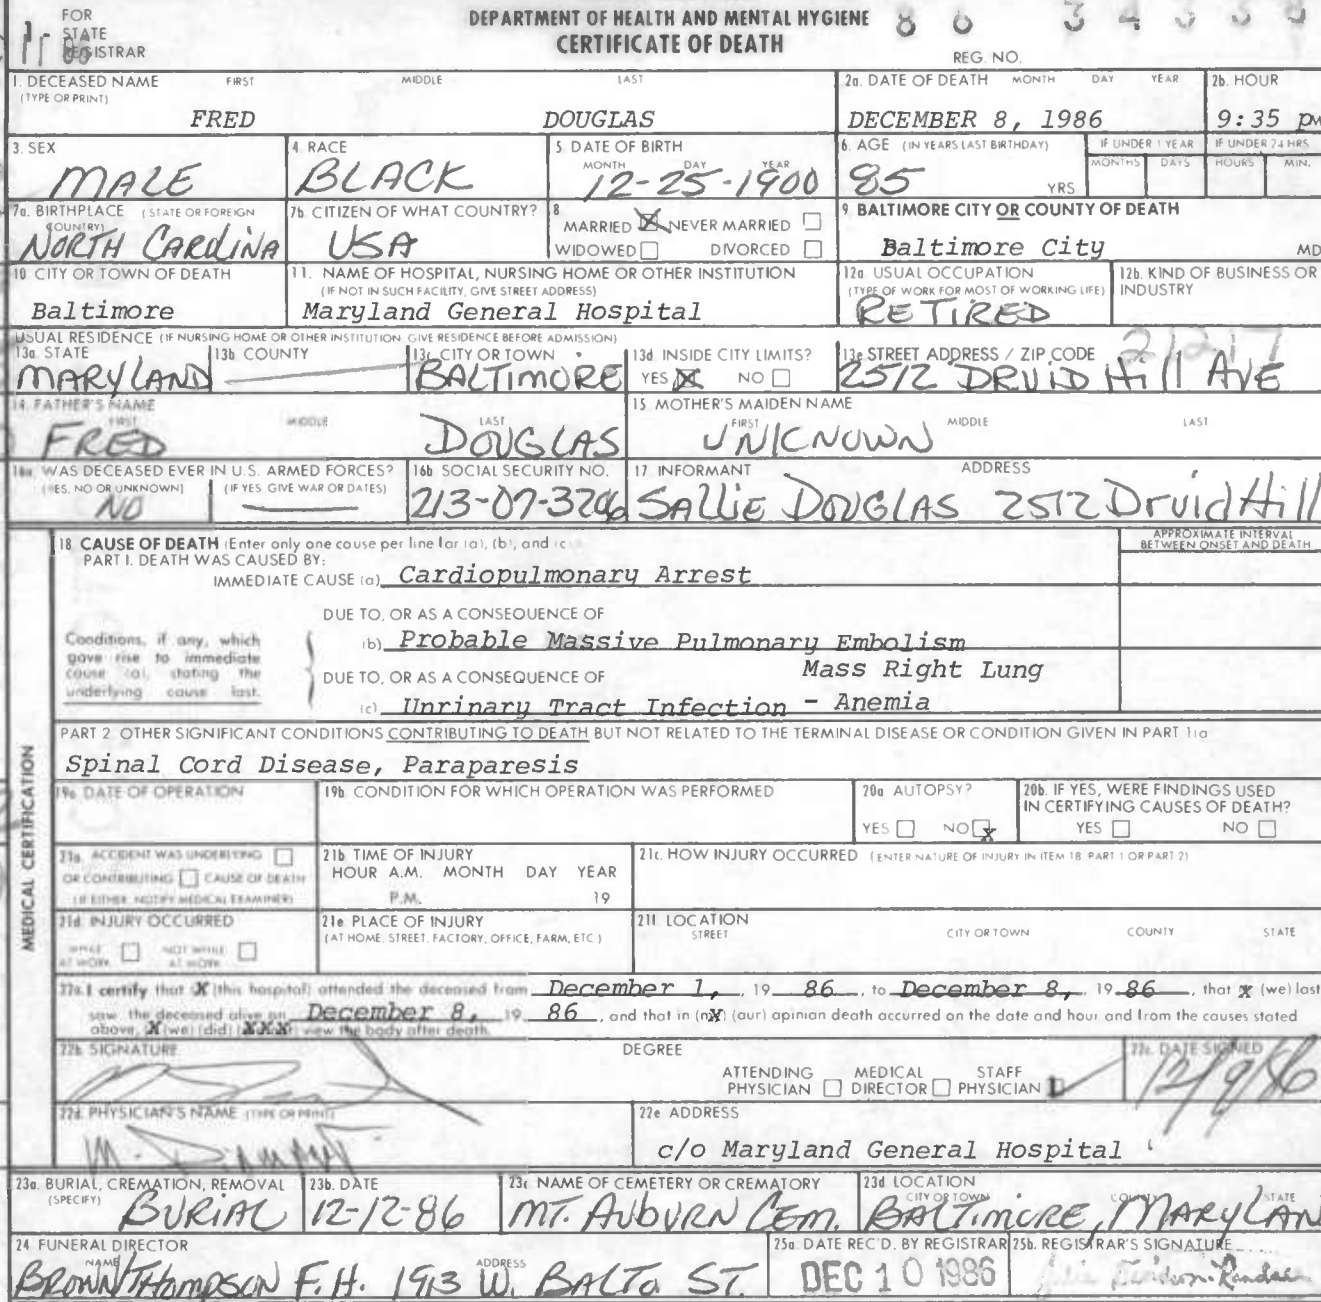 FOR
STATE
REGISTRAR
DEPARTMENT OF HEALTH AND MENTAL HYGIENE
CERTIFICATE OF DEATH
REG. NO.
1. DECEASED NAME FIRST MIDDLE LAST
(TYPE OR PRINT)
FRED DOUGLAS
2a. DATE OF DEATH MONTH DAY YEAR
DECEMBER 8, 1986
2b. HOUR
9:35 PM
3. SEX
MALE
4. RACE
BLACK
5. DATE OF BIRTH
MONTH DAY YEAR
12-25-1900
6. AGE (IN YEARS LAST BIRTHDAY)
85 YRS
IF UNDER 1 YEAR
MONTHS DAYS
IF UNDER 24 HRS
HOURS MIN.
7a. BIRTHPLACE (STATE OR FOREIGN
COUNTRY)
NORTH CAROLINA
7b. CITIZEN OF WHAT COUNTRY?
USA
8
MARRIED NEVER MARRIED
WIDOWED DIVORCED
9. BALTIMORE CITY OR COUNTY OF DEATH
Baltimore City MD
10 CITY OR TOWN OF DEATH
Baltimore
11. NAME OF HOSPITAL, NURSING HOME OR OTHER INSTITUTION
(IF NOT IN SUCH FACILITY, GIVE STREET ADDRESS)
Maryland General Hospital
12a USUAL OCCUPATION
(TYPE OF WORK FOR MOST OF WORKING LIFE)
RETIRED
12b. KIND OF BUSINESS OR
INDUSTRY
USUAL RESIDENCE (IF NURSING HOME OR OTHER INSTITUTION GIVE RESIDENCE BEFORE ADMISSION)
13a. STATE
MARYLAND
13b COUNTY
13c CITY OR TOWN
BALTIMORE
13d INSIDE CITY LIMITS?
YES X NO
13e STREET ADDRESS / ZIP CODE
21217
2512 DRUID Hill AVE
14. FATHER'S NAME
FIRST MIDDLE LAST
FRED DOUGLAS
15 MOTHER'S MAIDEN NAME
FIRST MIDDLE LAST
UNKNOWN
16a. WAS DECEASED EVER IN U.S. ARMED FORCES?
(YES, NO OR UNKNOWN) (IF YES GIVE WAR OR DATES)
NO
16b SOCIAL SECURITY NO.
213-07-3206
17 INFORMANT ADDRESS
SALLIE DOUGLAS 2512 Druid Hill
MEDICAL CERTIFICATION
18 CAUSE OF DEATH (Enter only one cause per line for (a), (b), and (c
PART I. DEATH WAS CAUSED BY:
APPROXIMATE INTERVAL
BETWEEN ONSET AND DEATH
IMMEDIATE CAUSE (a) Cardiopulmonary Arrest
DUE TO, OR AS A CONSEQUENCE OF
Conditions, if any, which
gave rise to immediate
cause (a), stating the
underlying cause last.
(b) Probable Massive Pulmonary Embolism
Mass Right Lung
DUE TO, OR AS A CONSEQUENCE OF
(c) Unrinary Tract Infection - Anemia
PART 2 OTHER SIGNIFICANT CONDITIONS CONTRIBUTING TO DEATH BUT NOT RELATED TO THE TERMINAL DISEASE OR CONDITION GIVEN IN PART 1(a
Spinal Cord Disease, Paraparesis
19a DATE OF OPERATION
19b. CONDITION FOR WHICH OPERATION WAS PERFORMED
20a AUTOPSY?
YES NO x
20b. IF YES, WERE FINDINGS USED
IN CERTIFYING CAUSES OF DEATH?
YES NO
21a. ACCIDENT WAS UNDERLYING
OR CONTRIBUTING CAUSE OF DEATH
(IF EITHER, NOTIFY MEDICAL EXAMINER)
21b TIME OF INJURY
HOUR A.M. MONTH DAY YEAR
P.M. 19
21c. HOW INJURY OCCURRED (ENTER NATURE OF INJURY IN ITEM 18 PART 1 OR PART 2)
21d INJURY OCCURRED
WHILE AT WORK NOT WHILE AT WORK
21e PLACE OF INJURY
(AT HOME, STREET, FACTORY, OFFICE, FARM, ETC.)
21f LOCATION
STREET CITY OR TOWN COUNTY STATE
22a. I certify that X (this hospital) attended the deceased from December 1, 19 86, to December 8, 19 86, that X (we) last
saw the deceased alive on December 8, 19 86, and that in (my) (our) opinion death occurred on the date and hour and from the causes stated
above, X (we) (did) (XXX) view the body after death.
22b SIGNATURE DEGREE
ATTENDING PHYSICIAN MEDICAL DIRECTOR STAFF PHYSICIAN
22c. DATE SIGNED
12/9/86
22d. PHYSICIAN'S NAME (TYPE OR PRINT)
M.
22e ADDRESS
c/o Maryland General Hospital
23a. BURIAL, CREMATION, REMOVAL
(SPECIFY)
BURIAL
23b. DATE
12-12-86
23c NAME OF CEMETERY OR CREMATORY
MT. AUBURN CEM.
23d LOCATION
CITY OR TOWN COUNTY STATE
BALTIMORE, MARYLAND
24 FUNERAL DIRECTOR
NAME ADDRESS
BROWN/THOMPSON F.H. 1913 W. BALTO. ST.
25a. DATE REC'D. BY REGISTRAR
DEC 10 1986
25b. REGISTRAR'S SIGNATURE